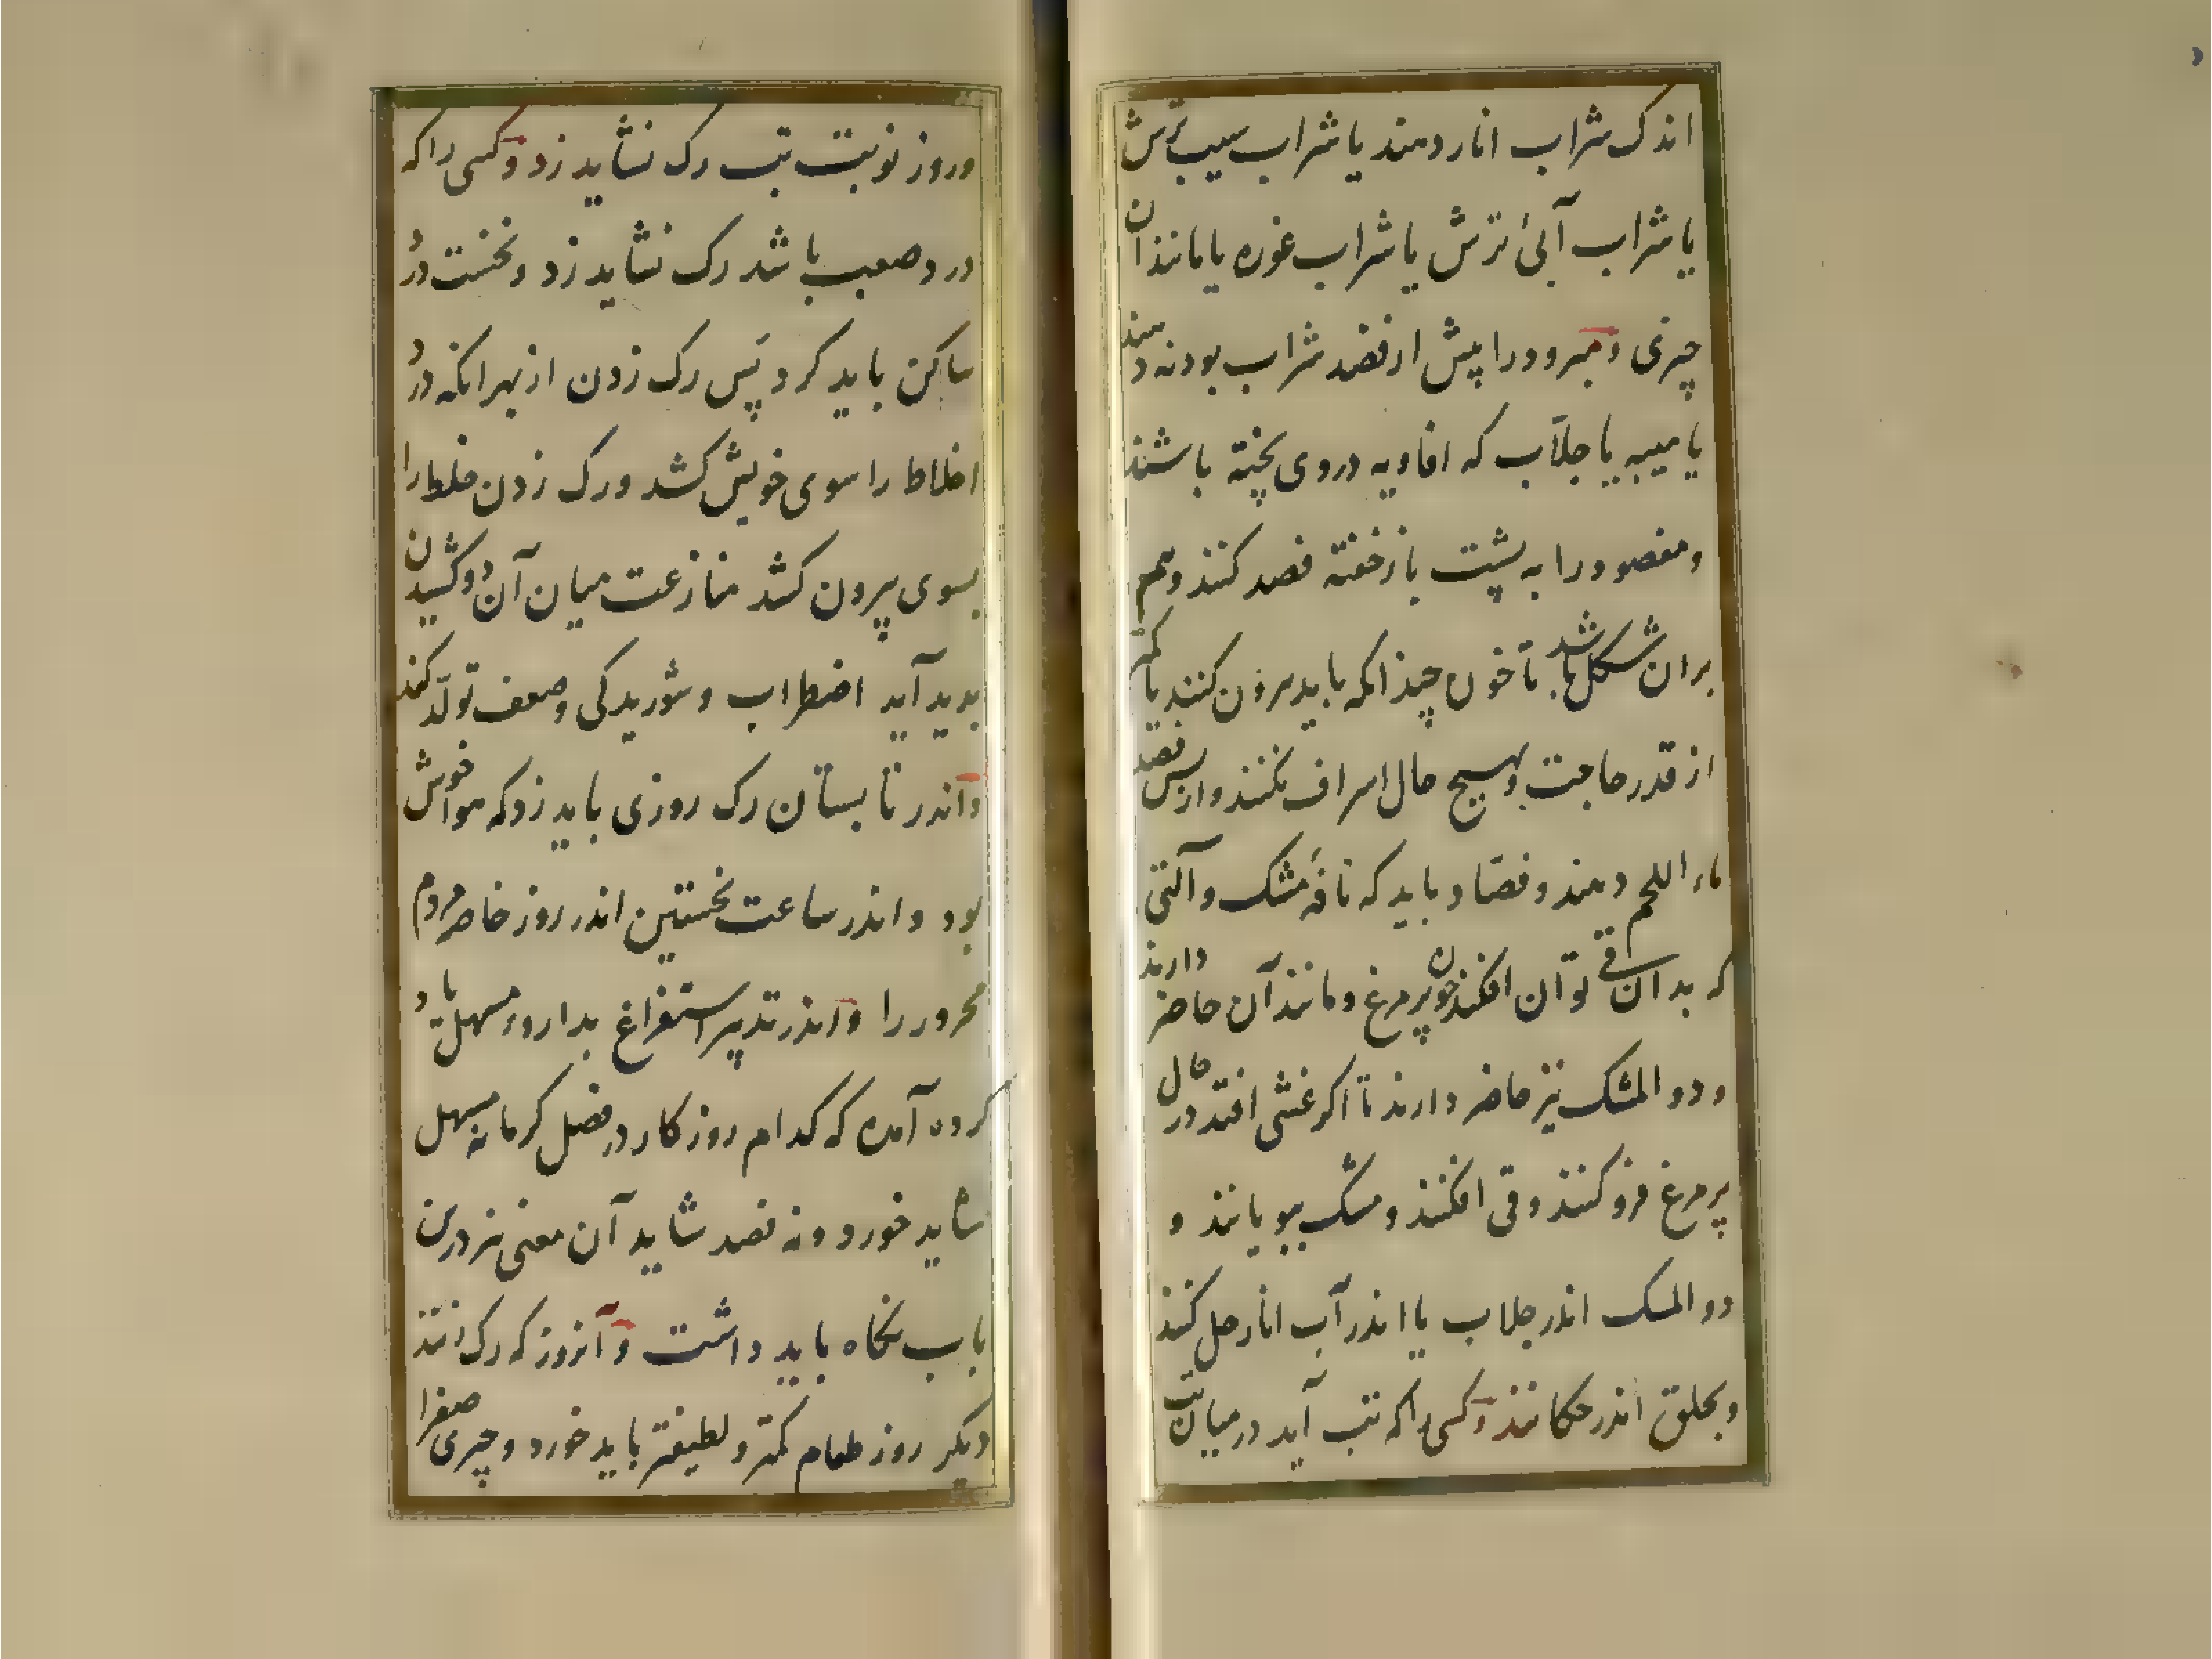 اندک شراب انار دهند یا شراب سیب ترش
یا شراب آبئ ترش یا شراب غوره یا مانند آن
چیزی و مبرود را پیش از فصد شراب بودنه دهند
یا میبه یا جلاّب که افاویه در وی پخته باشند
و مفصود را به پشت باز خفته فصد کنند و هم
بران شکل باشد تا خون چندانکه باید بیرون کنند یا کمتر
از قدر حاجت و بهیچ حال اسراف نکنند و از پس فصد
ماء اللحم دهند و فصّاد باید که نافهٔ مشک و آلتی
که بدان قی توان افکند چون پر مرغ و مانند آن حاضر دارند
و دوالمشک نیز حاضر دارند تا اگر غشی افتد در حال
پر مرغ فرو کنند و قی افکنند و مشک ببویانند و
دوالمسک اندر جلاب یا اندر آب انار حل کنند
و بحلق اندر چکانند و کسی را که تب آید در میان تب
و روز نوبت تب رک نشاید زد و کسی را که
درد صعب باشد رک نشاید زد و نخست درد
ساکن باید کرد پس رک زدن از بهر انکه درد
اخلاط را سوی خویش کشد و رک زدن خلط را
بسوی بیرون کشد منازعت میان آن دو کشیدن
بدید آید اضطراب و شوریدگی و ضعف تولّد کند
و اندر تابستان رک روزی باید زد که هوا خوش
بود و اندر ساعت نخستین اندر روز خاصه مردم
محرور را و اندر تدبیر استفراغ بداروء مسهل یاد
کرده آمده که کدام روزکار در فصل کرما نه مسهل
شاید خورد و نه فصد شاید آن معنی نیز درین
باب نکاه باید داشت و آنروز که رک زنند
دیکر روز طعام کمتر و لطیفتر باید خورد و چیزی صفرا